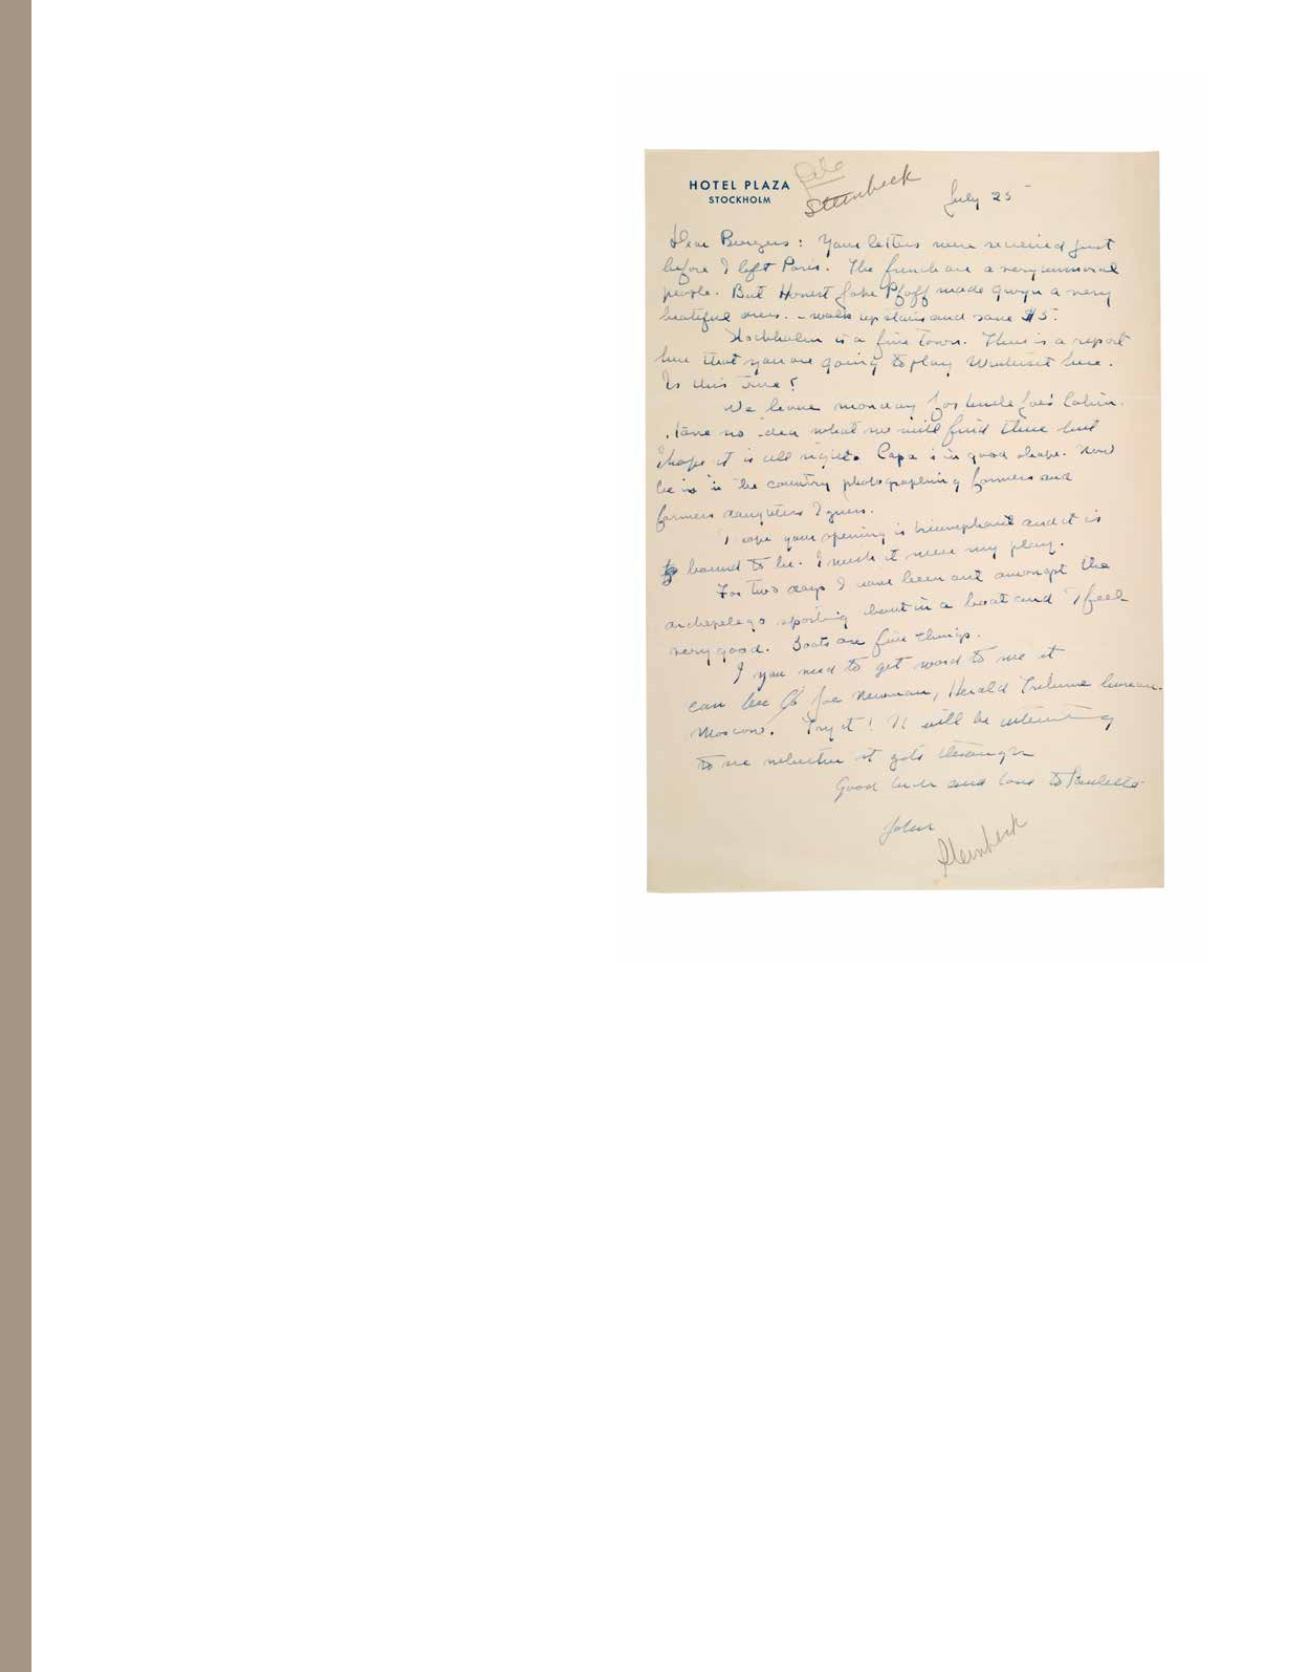 HOTEL PLAZA
STOCKHOLM
File
Steinbeck
July 25
Dear Burgess: Your letters were received just
before I left Paris. The french are a very immoral
people. But Honest Jake Pfoff made Gwyn a very
beatiful dress. – walk up stairs and save $5.
Stockholm is a fine town. There is a report
here that you are going to play Winterset here.
Is this true?
We leave monday for Uncle Joe's Cabin.
Have no idea what we will find there but
I hope it is all right. Capa is in good shape. Now
he is in the country photographing farmers and
farmers daughters I guess.
I hope your opening is triumphant and it is
bound to be. I wish it were my play.
For two days I have been out amongst the
archepelego sporting bout in a boat and I feel
very good. Boats are fine things.
I you need to get word to me it
can be c/o Joe Newman, Herald Tribune bureau
Moscow. Try it! It will be interesting
to see whether it gets through
Good luck and love to Paulette
John
Steinbeck